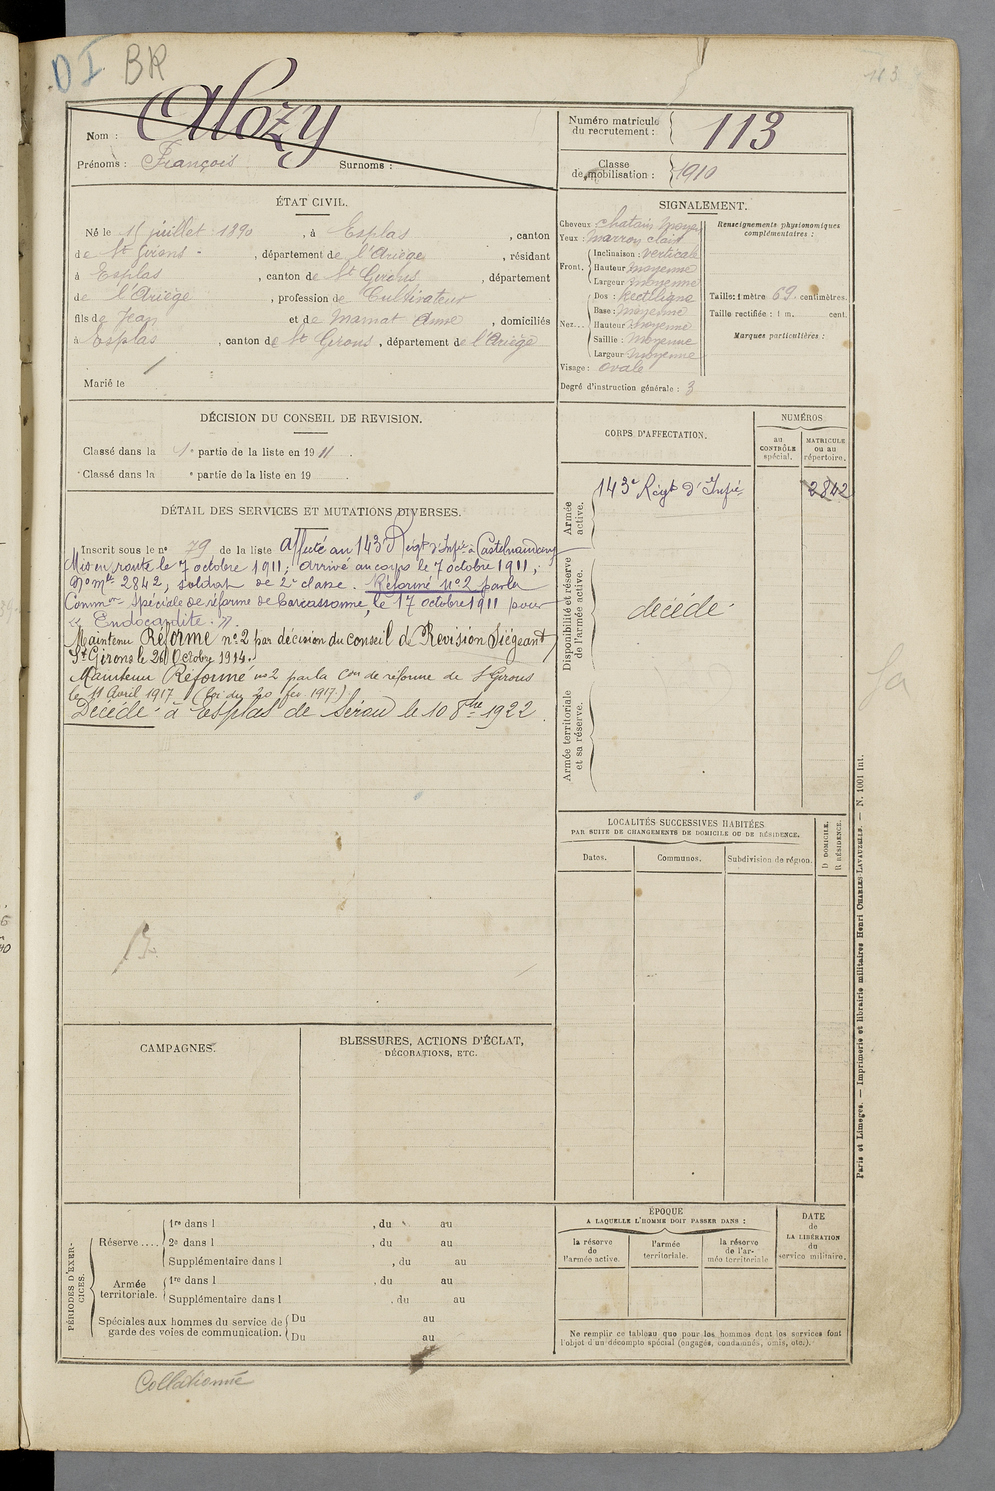 DI BR
113
Nom : Alozy
Prénoms : François Surnoms :
Numéro matricule du recrutement : 113
Classe de mobilisation : 1910
ÉTAT CIVIL.
Né le 15 juillet 1890, à Esplas, canton
de St Girons, département de l'Ariège, résidant
à Esplas, canton de St Girons, département
de l'Ariège, profession de Cultivateur
fils de Jean et de Mamat Anne, domiciliés
à Esplas, canton de St Girons, département de l'Ariège
Marié le
SIGNALEMENT.
Cheveux chatain moyen
Yeux : marron clair
Front. Inclinaison : verticale
Hauteur moyenne
Largeur moyenne
Nez... Dos : Rectiligne
Base : moyenne
Hauteur : moyenne
Saillie : moyenne
Largeur moyenne
Visage : ovale
Degré d'instruction générale : 3
Renseignements physionomiques complémentaires :
Taille : 1 mètre 69 centimètres.
Taille rectifiée : 1 m. cent.
Marques particulières :
DÉCISION DU CONSEIL DE REVISION.
Classé dans la 1e partie de la liste en 1911.
Classé dans la e partie de la liste en 19
DÉTAIL DES SERVICES ET MUTATIONS DIVERSES.
Inscrit sous le no 79 de la liste affecté au 143e Régt d'Infie à Castelnaudary
Mis en route le 7 octobre 1911; arrivé au corps le 7 octobre 1911,
No mle 2842, soldat de 2e classe. Réformé No 2 par la
Common spéciale de réforme de Carcassonne, le 17 octobre 1911 pour
« Endocardite. »
Maintenu Réformé no 2 par décision du conseil de Revision Siégeant
St Girons le 26 Octobre 1914.
Maintenu Réformé no 2 par la Con de réforme de St Girons
le 11 Avril 1917 (loi du 20 fev. 1917)
Décédé à Esplas de Sérou le 10 8bre 1922.
CORPS D'AFFECTATION.
NUMÉROS
au CONTRÔLE spécial.
MATRICULE OU au répertoire.
Armée active.
143e Régt d'Infie 2842
Disponibilité et réserve de l'armée active.
décédé
Armée territoriale et sa réserve.
LOCALITÉS SUCCESSIVES HABITÉES
PAR SUITE DE CHANGEMENTS DE DOMICILE OU DE RÉSIDENCE.
Dates. Communes. Subdivision de région.
D DOMICILE.
R RÉSIDENCE.
CAMPAGNES.
BLESSURES, ACTIONS D'ÉCLAT,
DÉCORATIONS, ETC.
PÉRIODES D'EXERCICES.
Réserve.... 1re dans l , du au
2e dans l , du au
Supplémentaire dans l , du au
Armée territoriale. 1re dans l , du au
Supplémentaire dans l , du au
Spéciales aux hommes du service de garde des voies de communication. Du au
Du au
ÉPOQUE
A LAQUELLE L'HOMME DOIT PASSER DANS :
la réserve de l'armée active.
l'armée territoriale.
la réserve de l'armée territoriale
DATE de LA LIBÉRATION du service militaire.
Ne remplir ce tableau que pour les hommes dont les services font
l'objet d'un décompte spécial (engagés, condamnés, omis, etc.).
Paris et Limoges. — Imprimerie et librairie militaires Henri CHARLES-LAVAUZELLE. — N. 1001 Int.
Collationné